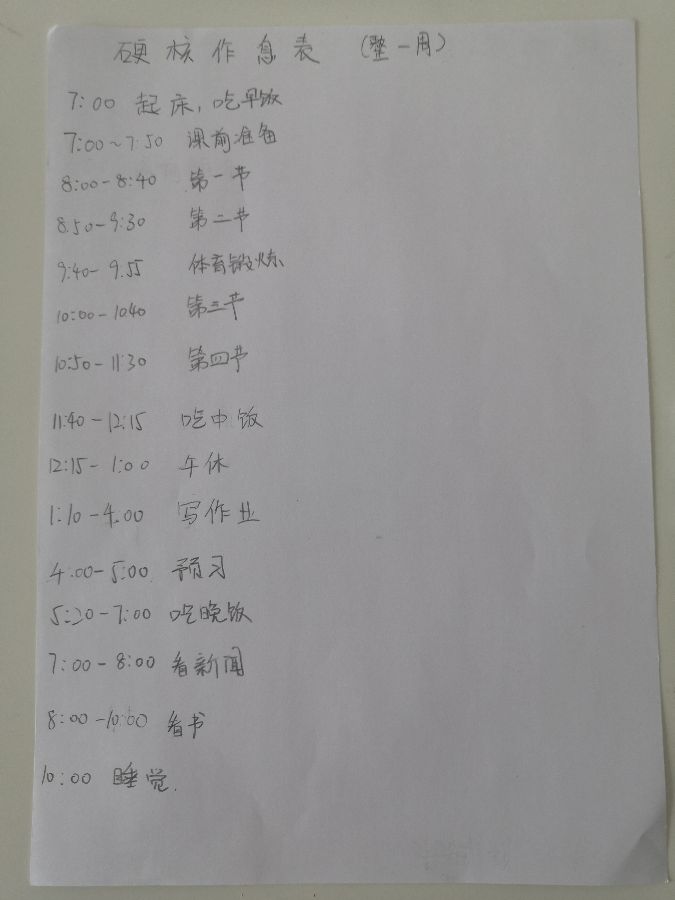 硬核作息表 (整一周)
7:00 起床，吃早饭
7:00~7:50 课前准备
8:00-8:40 第一节
8:50-9:30 第二节
9:40-9:55 体育锻炼
10:00-1040 第三节
10:50-11:30 第四节
11:40-12:15 吃中饭
12:15-1:00 午休
1:10-4:00 写作业
4:00-5:00 预习
5:20-7:00 吃晚饭
7:00-8:00 看新闻
8:00-10:00 看书
10:00 睡觉.